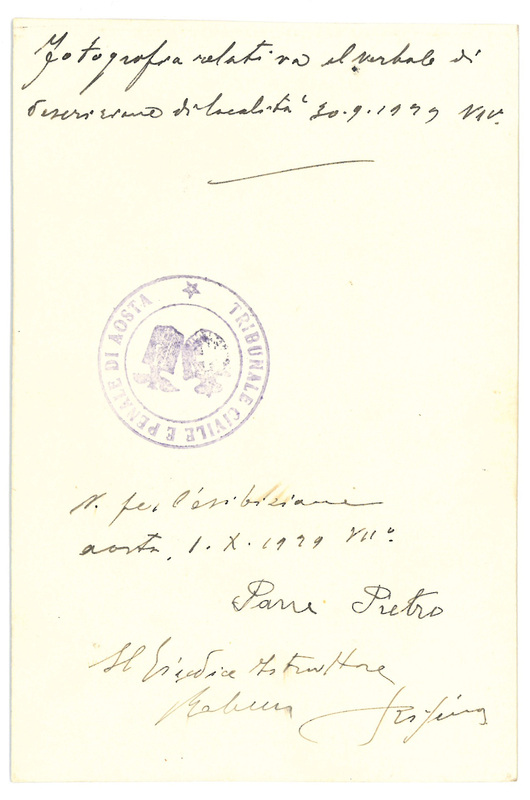 Fotografia relativa al verbale di
descrizione di località 30.9.1929 VII°.
TRIBUNALE CIVILE E PENALE DI AOSTA
V. per l'esibizione
aosta, 1. X. 1929 VII°.
Pietro
Il Giudice Istruttore